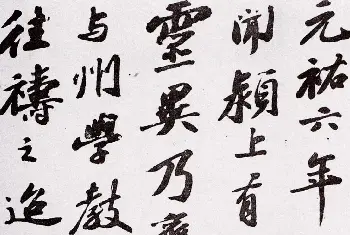 元祐六年
聞潁上有
靈異乃
与州學教
往禱之迨